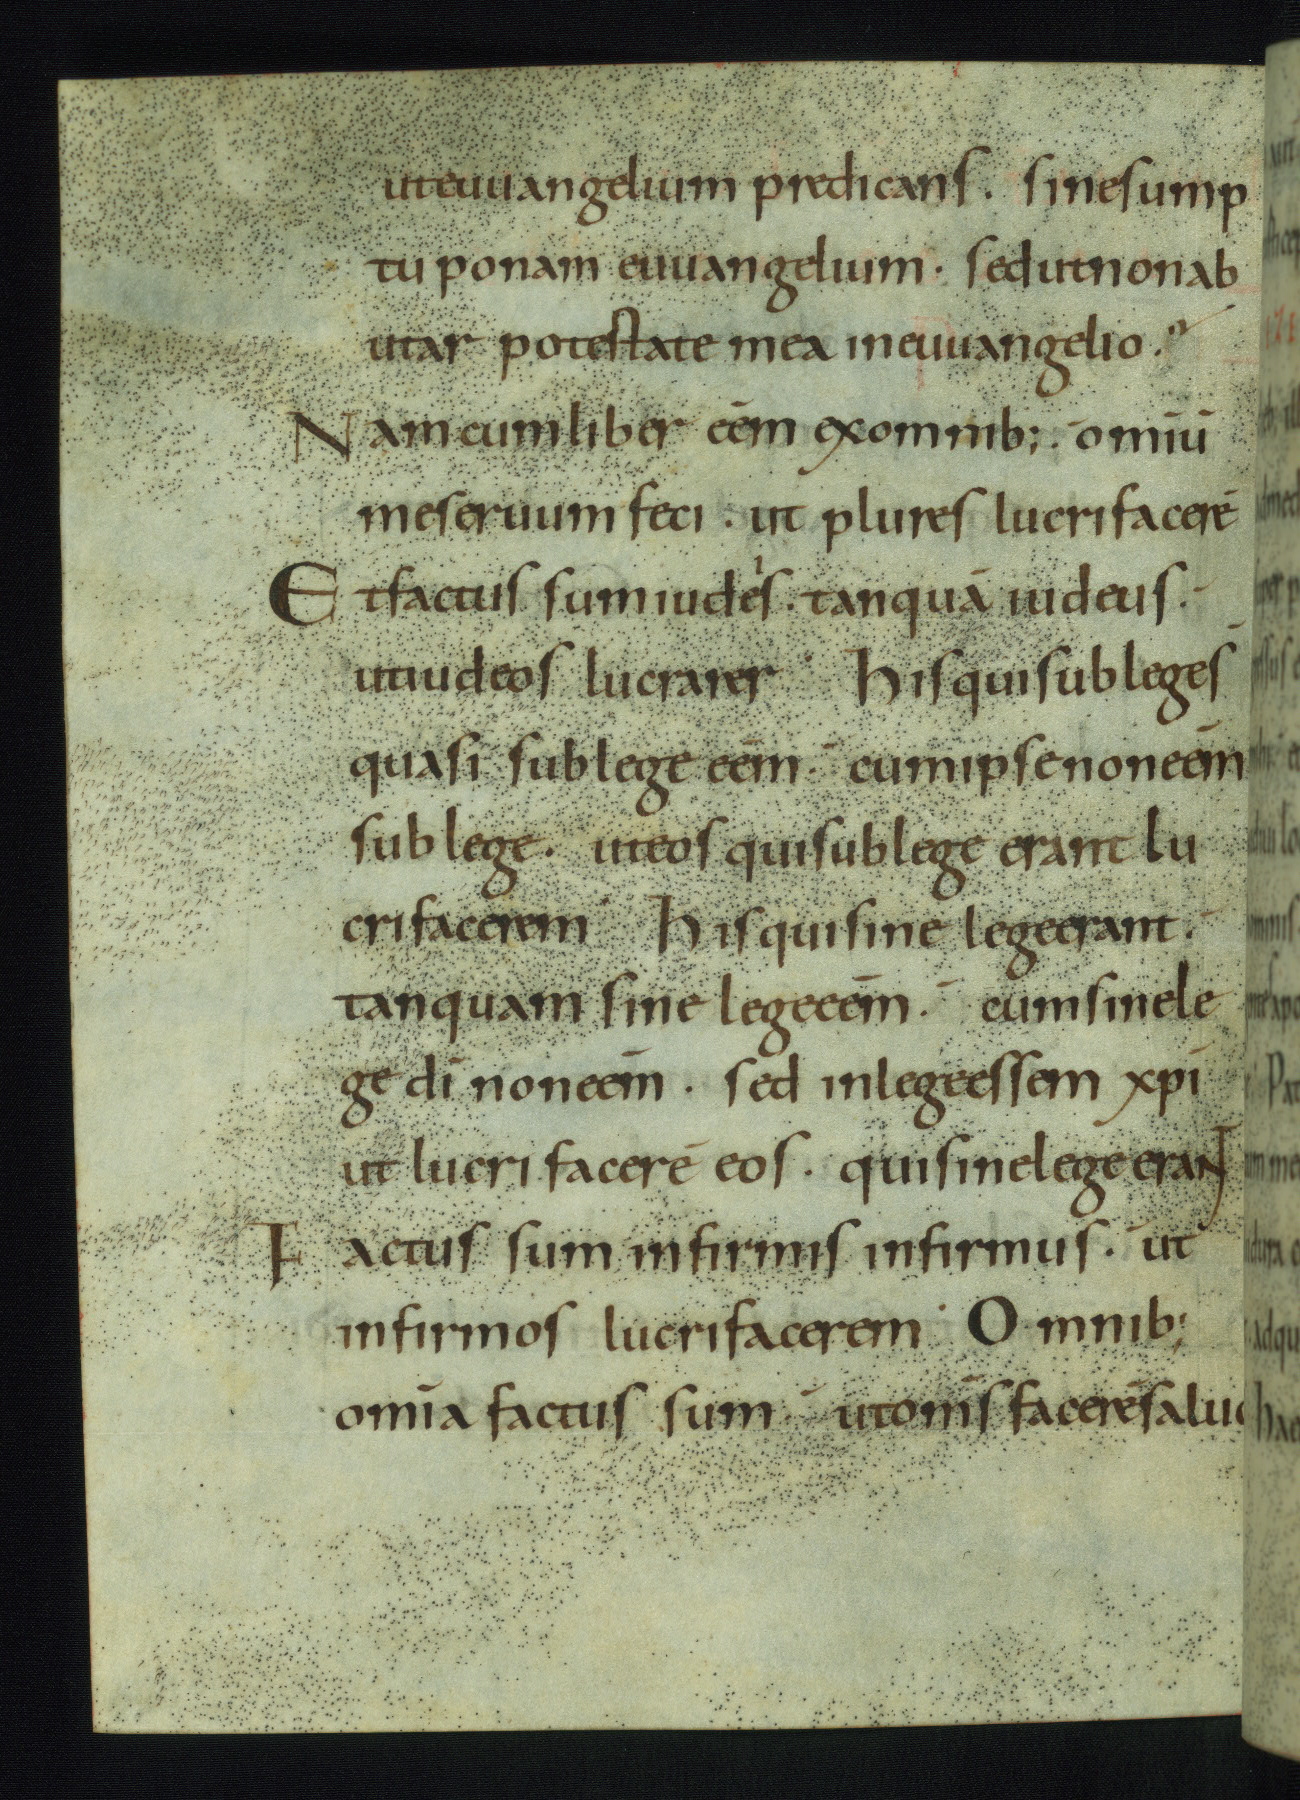 uteuuangelium predicans. sinesump
tu ponam euuangelium. sedutnonab
utar potestate mea ineuuangelio.
Nam cum liber eēm exomnib;. omiū
meseruum feci. ut plures lucrifacerē
Et factus sum iudeis. tanquā iudeus.
utiudeos lucrarer Hisquisubleges
quasi sublege eēm. cumipsenoneēm
sublege. uteos quisublege erant lu
crifacerem Hisquisine legeerant.
tanquam sine legeeēm. cumsinele
ge dī noneēm. sed inlegeessem xpī
ut lucrifacerē eos. quisinelege erant
Factus sum infirmis infirmus. ut
infirmos lucrifacerem Omnib;
omīa factus sum. utomīs facerēsaluo